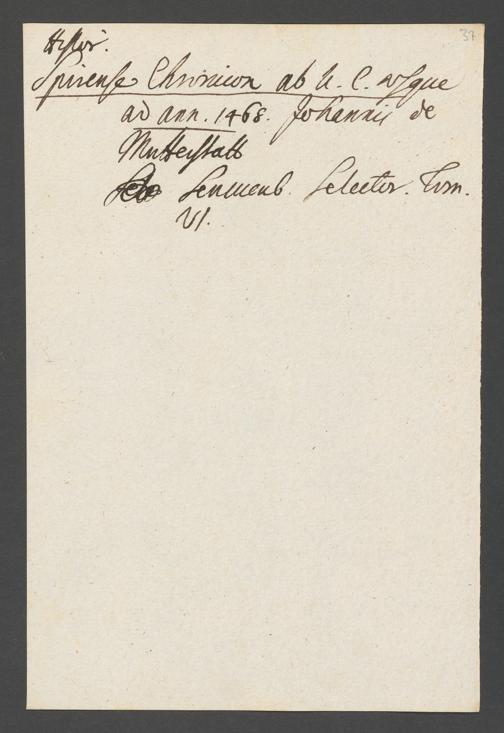 37
Histor.
Spirense Chronicon ab U. C. usque
ad ann. 1468. Johannis de
Mutterstatt
Senckenb. Selector. Tom.
VI.